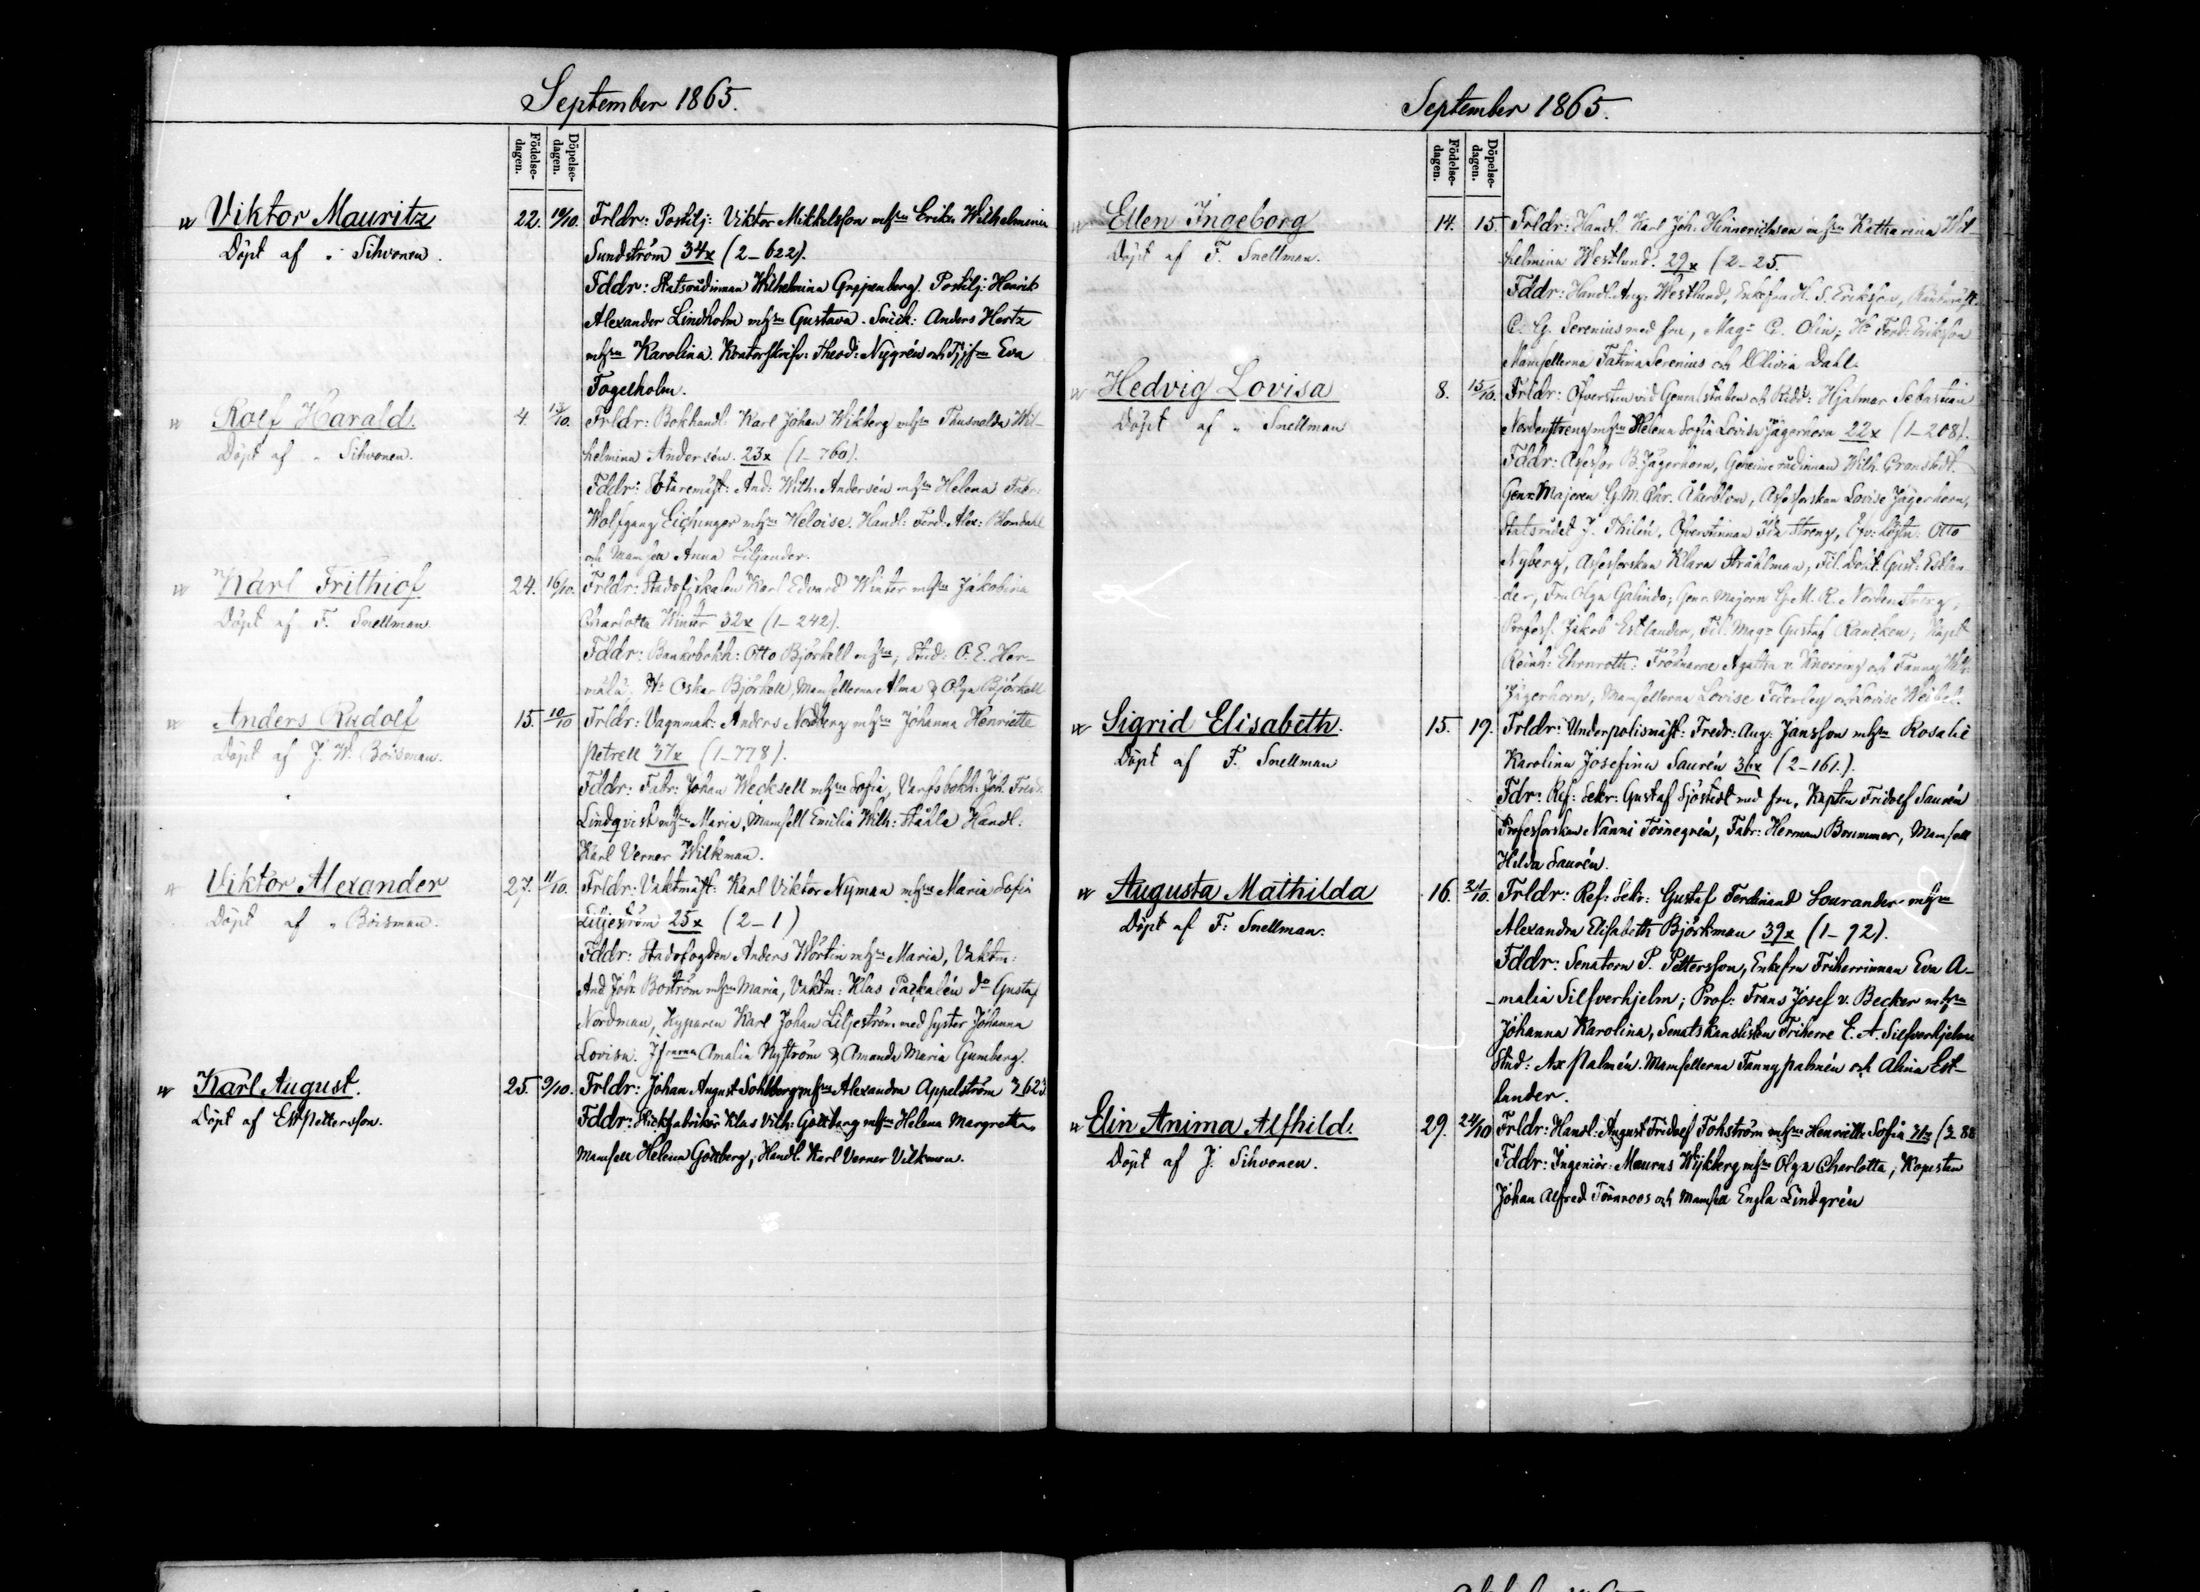 September 1865.
Födelse-dagen.
Döpelse-dagen.
Viktor Mauritz
Döpt af " Sihvonen.
22. 10/10. Frldr: Postilj: Viktor Mikkelsson mhu Erika Wilhelmina
Sundström 34x (2-622).
Fddr: Statsrådinnan Wilhelmina Grippenberg. Postilj: Henrik
Alexander Lindholm mhu Gustava. Snick: Anders Hertz
mhu Karolina. Kontorskrifv: Theod: Nygrén och Eva
Fogelholm.
Rolf Harald.
Döpt af " Sihvonen.
4. 13/10. Frldr: Bokhandl: Karl Johan Wikberg mhu Thusnelda Wil-
helmina Andersén. 23x (1-760).
Fddr: Sotaremäst: And: Wilh: Andersén mhu Helena Fabr:
Wolfgang Eichinger mhu Heloise. Handl: Ferd: Alex: Blomdahl
och Mamsell Anna Liljander.
Karl Frithiof
Döpt af F. Snellman.
24. 16/10. Frldr: Stadsfiskalen Karl Edvard Winter mhu Jakobina
Charlotta Winter 32x (1-242).
Fddr: Bankobokh: Otto Björkell mhu; Stud: O. E. Her-
mälä; Hr Oskar Björkell, Mamsellerna Alma & Olga Björkell
Anders Rudolf
Döpt af J. W. Boisman.
15. 10/10 Frldr: Vagnmak: Anders Nordberg mhu Johanna Henriette
Petrell 37x (1-778).
Fddr: Fabr: Johan Wecksell mhu Sofia, Varfsbokh: Joh. Fred:
Lindqvist mhu Maria, Mamsell Emilia Wilh: Ståhla Handl:
Karl Verner Wilkman.
Viktor Alexander
Döpt af " Boisman.
27. 11/10. Frldr: Vaktmäst: Karl Viktor Nyman mhu Maria Sofia
Liljeström 25x (2-1)
Fddr: Stadsfogden Anders Wörtin mhu Maria, Vaktm:
And Joh: Boström mhu Maria, Vaktm: Klas Packalén do Gustaf
Nordman, Kyparen Karl Johan Liljeström med syster Johanna
Lovisa. Jfrurna Amalia Nyström & Amanda Maria Gumberg.
Karl August.
Döpt af Pettersson.
25. 9/10. Frldr: Johan August Sohlberg mhu Alexandra Appelström 3-623
Fddr: Klas Vilh: Goltberg mhu Helena Margretta,
Mamsell Helena Goltberg, Handl. Karl Verner Vilkman.
September 1865.
Födelse-dagen.
Döpelse-dagen.
Ellen Ingeborg
Döpt af F. Snellman.
14. 15. Frldr: Handl. Karl Joh: Hinnerichsen mhu Katharina Wil-
helmina Westlund. 29x (2-25.
Fddr: Handl. Aug: Westlund, Enkefru H. S. Erikson,
C: G. Serenius med fru, Mag: C. Olin; Hr Ferd: Erikson
Mamsellerna Fatima Serenius och Olivia Dahl.
Hedvig Lovisa
Döpt af " Snellman
8. 15/10. Frldr: Öfversten vid Generalstaben och Ridd: Hjalmar Sebastian
Nordenstreng mhu Helena Sofia Lovisa Jägerhorn 22x (1-208).
Fddr: Assessor B. Jägerhorn, Geheimerådinnan Wilh. Granstedt.
Gen:-Majoren G. M. Chr. Åkerblom, Assessorskan Lovise Jägerhorn,
Statsrådet J. Thilén, Öfverstinnan Ida Streng, Öfv: Löjtn: Otto
Nyberg, Assessorskan Klara Stråhlman, Fil. Dokt. Gust: Estlan-
der, Fru Olga Galindo; Gen: Majorn G. M. R. Nordenstreng,
Profess. Jakob Estlander, Fil. Mag: Gustaf Rancken; Kapt.
Reinh: Ehrnroth: Fröknarne Agatha v. Knorring och Fanny
Jägerhorn; Mamsellerna Lovise Federley och Lovise Weibel.
Sigrid Elisabeth.
Döpt af F. Snellman
15. 19. Frldr: Underpolismäst: Fredr: Aug: Jansson mhu Rosalie
Karolina Josefina Saurén 36x (2-161.).
Fdr: Ref: Sekr: Gustaf Sjöstedt med fru, Kapten Fridolf Saurén
Professorskan Nanni Törnegrén, Fabr: Herman Brummer, Mamsell
Hilda Saurén.
Augusta Mathilda
Döpt af F. Snellman.
16. 21/10. Frldr: Ref: Sekr: Gustaf Ferdinand Sourander mhu
Alexandra Elisabeth Björkman 39x (1-72).
Fddr: Senatorn P. Pettersson, Enkefru Friherrinnan Eva A-
malia Silfverhjelm; Prof: Frans Josef v. Becker mhu
Johanna Karolina, Senatskanslisten Friherre E. A. Silfverhjelm
Stud: Ax Palmén. Mamsellerna Fanny Palmén och Alina Est-
lander.
Elin Anima Alfhild.
Döpt af J. Sihvonen.
29. 24/10 Frldr: Handl: August Fridolf Fohström mhu Henriette Sofia (3-88
Fddr: Ingeniör: Maurns Wijkberg mhu Olga Charlotta; Kapten
Johan Alfred Törnroos och Mamsell Engla Lindgrén